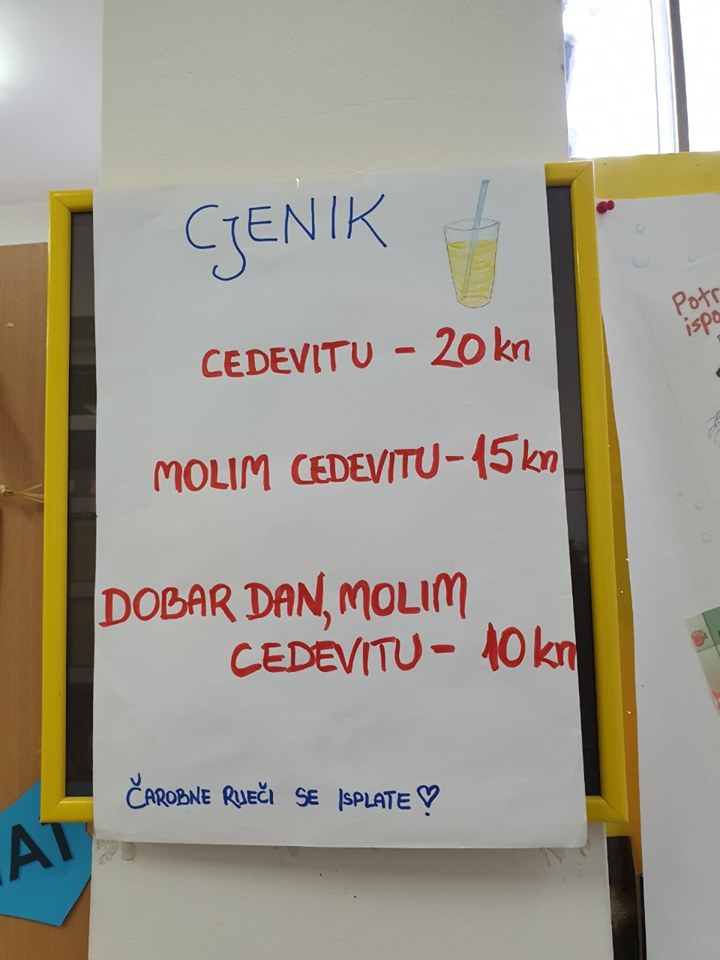 CJENIK
CEDEVITU - 20 kn
MOLIM CEDEVITU - 15 kn
DOBAR DAN, MOLIM
CEDEVITU - 10 kn
ČAROBNE RIJEČI SE ISPLATE ♡